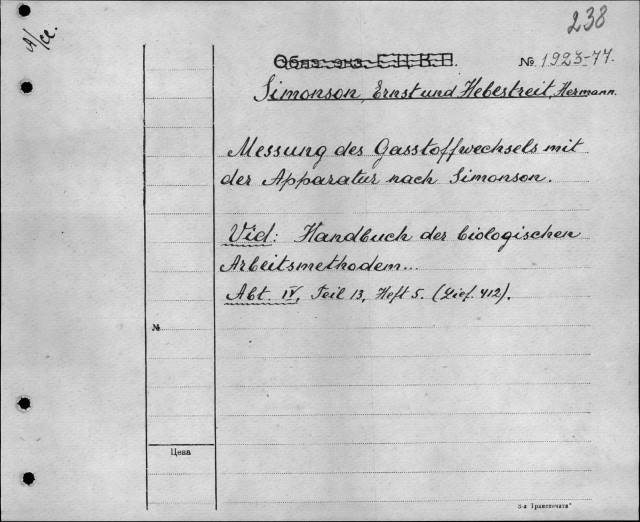 238
Обяз. экз. Г.Ц.К.П.
№ 1923-77.
Simonson, Ernst und Hebestreit, Hermann.
Messung des Gasstoffwechsels mit
der Apparatur nach Simonson.
Vid: Handbuch der biologischen
Arbeitsmethodem...
Abt. IV, Teil 13, Heft 5. (Lief. 412).
№
Цена
3-я "Транспечать"